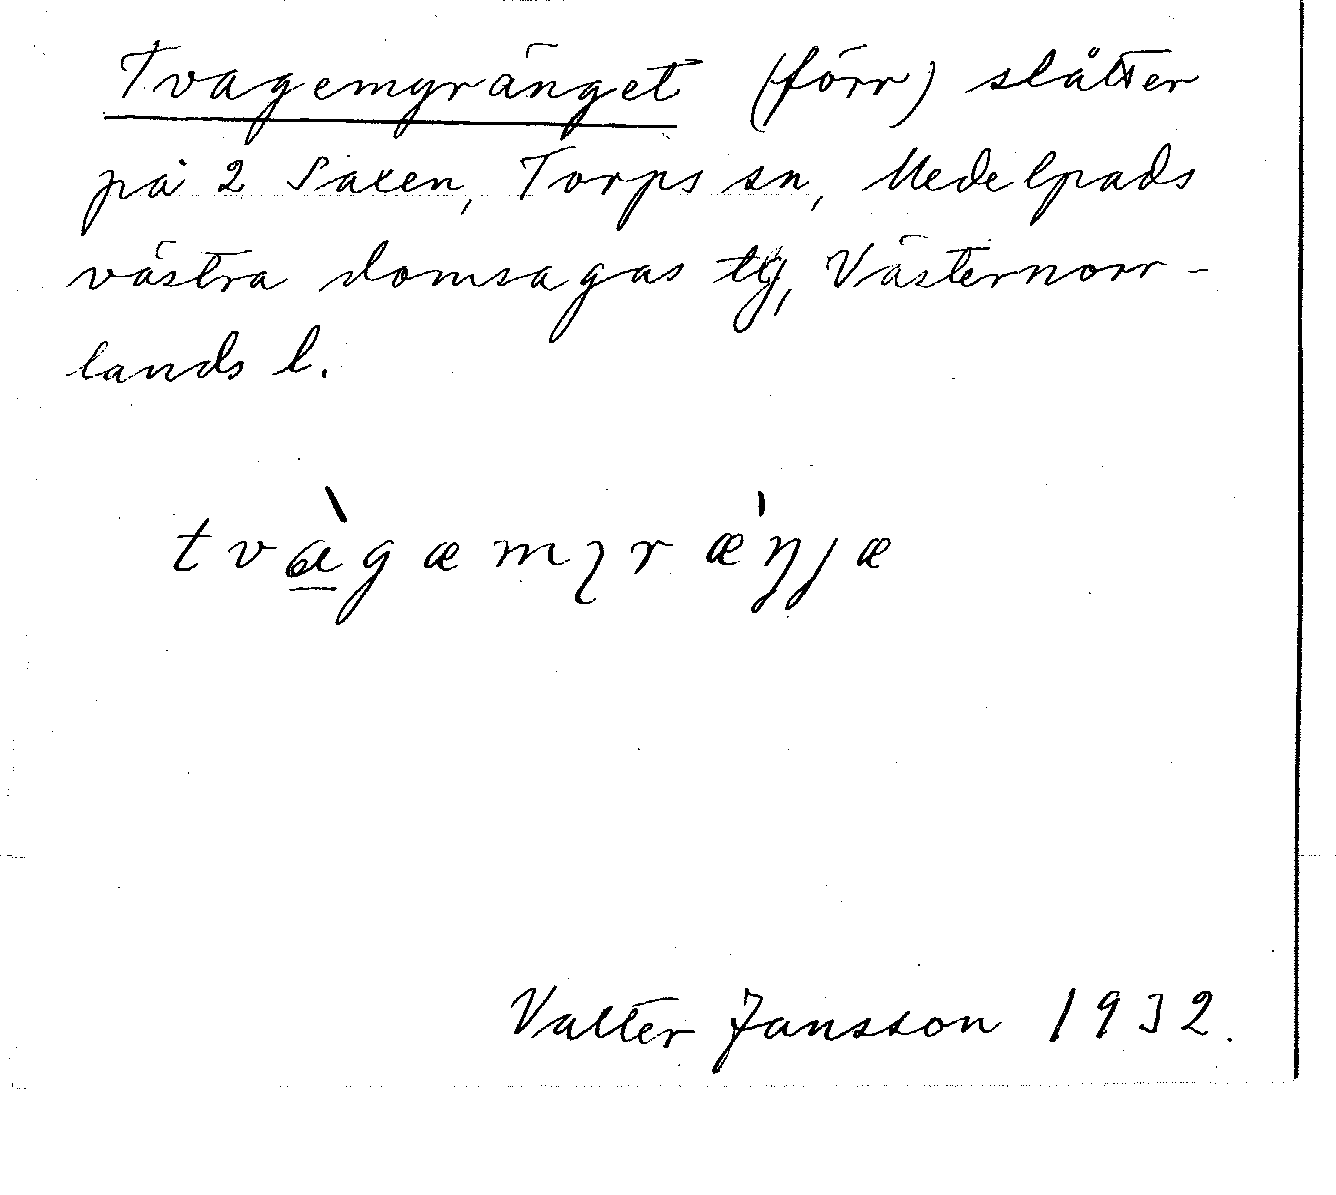 Tvagemyränget (förr) slåtter
på 2 Saxen, Torps sn, Medelpads
västra domsagas tg, Västernorr-
lands l.
tvæ̀gæmyræ'ŋjæ
Valter Jansson 1932.